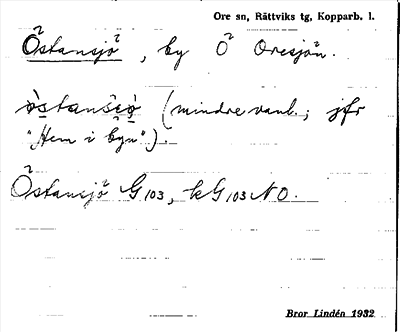 Ore sn, Rättviks tg, Kopparb. l.
Östansjö, by Ö Oresjön.
(mindre vanl.; jfr
"Hem i byn").
Östansjö G103, kG103 NO.
Bror Lindén 1932